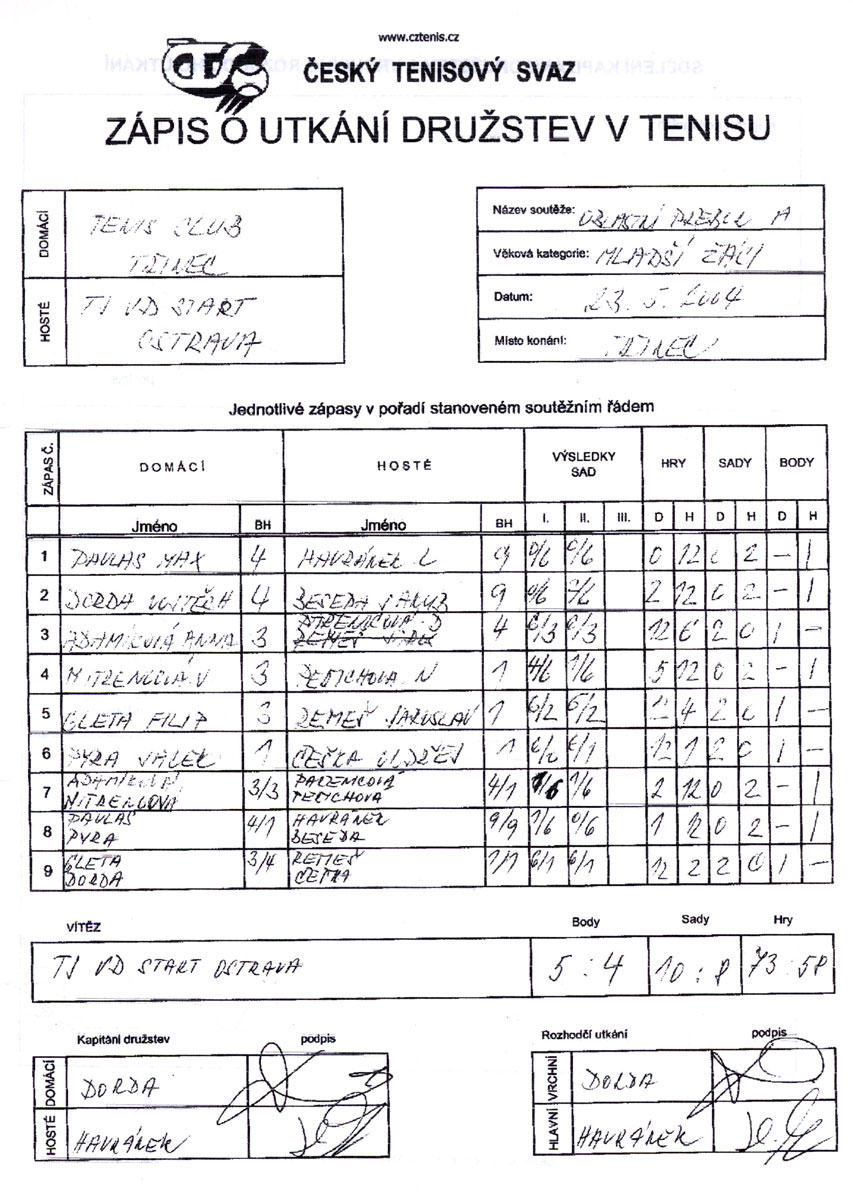 www.cztenis.cz
ČESKÝ TENISOVÝ SVAZ
ZÁPIS O UTKÁNÍ DRUŽSTEV V TENISU
DOMÁCÍ
TENIS CLUB
TŘINEC
HOSTÉ
TJ VD START
OSTRAVA
Název soutěže: OBLASTNÍ PŘEBOR A
Věková kategorie: MLADŠÍ ŽÁCI
Datum: 23. 5. 2004
Místo konání: TŘINEC
Jednotlivé zápasy v pořadí stanoveném soutěžním řádem
ZÁPAS Č. DOMÁCÍ HOSTÉ VÝSLEDKY SAD HRY SADY BODY
Jméno BH Jméno BH I. II. III. D H D H D H
1 PAVLAS MAX 4 HAVRÁNEK L 9 0/6 0/6 0 12 0 2 – 1
2 DORDA VOJTĚCH 4 BESEDA JAKUB 9 0/6 2/6 2 12 0 2 – 1
3 ADAMIKOVÁ ANNA 3 4 6/3 6/3 12 6 2 0 1 –
4 MITRENGOVÁ V 3 PETICHOVA N 1 4/6 1/6 5 12 0 2 – 1
5 GLETA FILIP 3 REMEŠ JAROSLAV 1 6/2 6/2 12 4 2 0 1 –
6 PYRA 1 ČEŠKA ONDŘEJ 1 6/0 6/1 12 1 2 0 1 –
7 ADAMIKOVÁ 3/3 4/1 1/6 1/6 2 12 0 2 – 1
MITRENGOVA PETICHOVA
8 PAVLAS 4/1 HAVRÁNEK 9/9 1/6 0/6 1 12 0 2 – 1
PYRA BESEDA
9 GLETA 3/4 REMEŠ 1/1 6/1 6/1 12 2 2 0 1 –
DORDA ČEŠKA
VÍTĚZ Body Sady Hry
TJ VD START OSTRAVA 5 : 4 10 : 8 73 : 58
Kapitáni družstev podpis
DOMÁCÍ DORDA
HOSTÉ HAVRÁNEK
Rozhodčí utkání podpis
VRCHNÍ DORDA
HLAVNÍ HAVRÁNEK